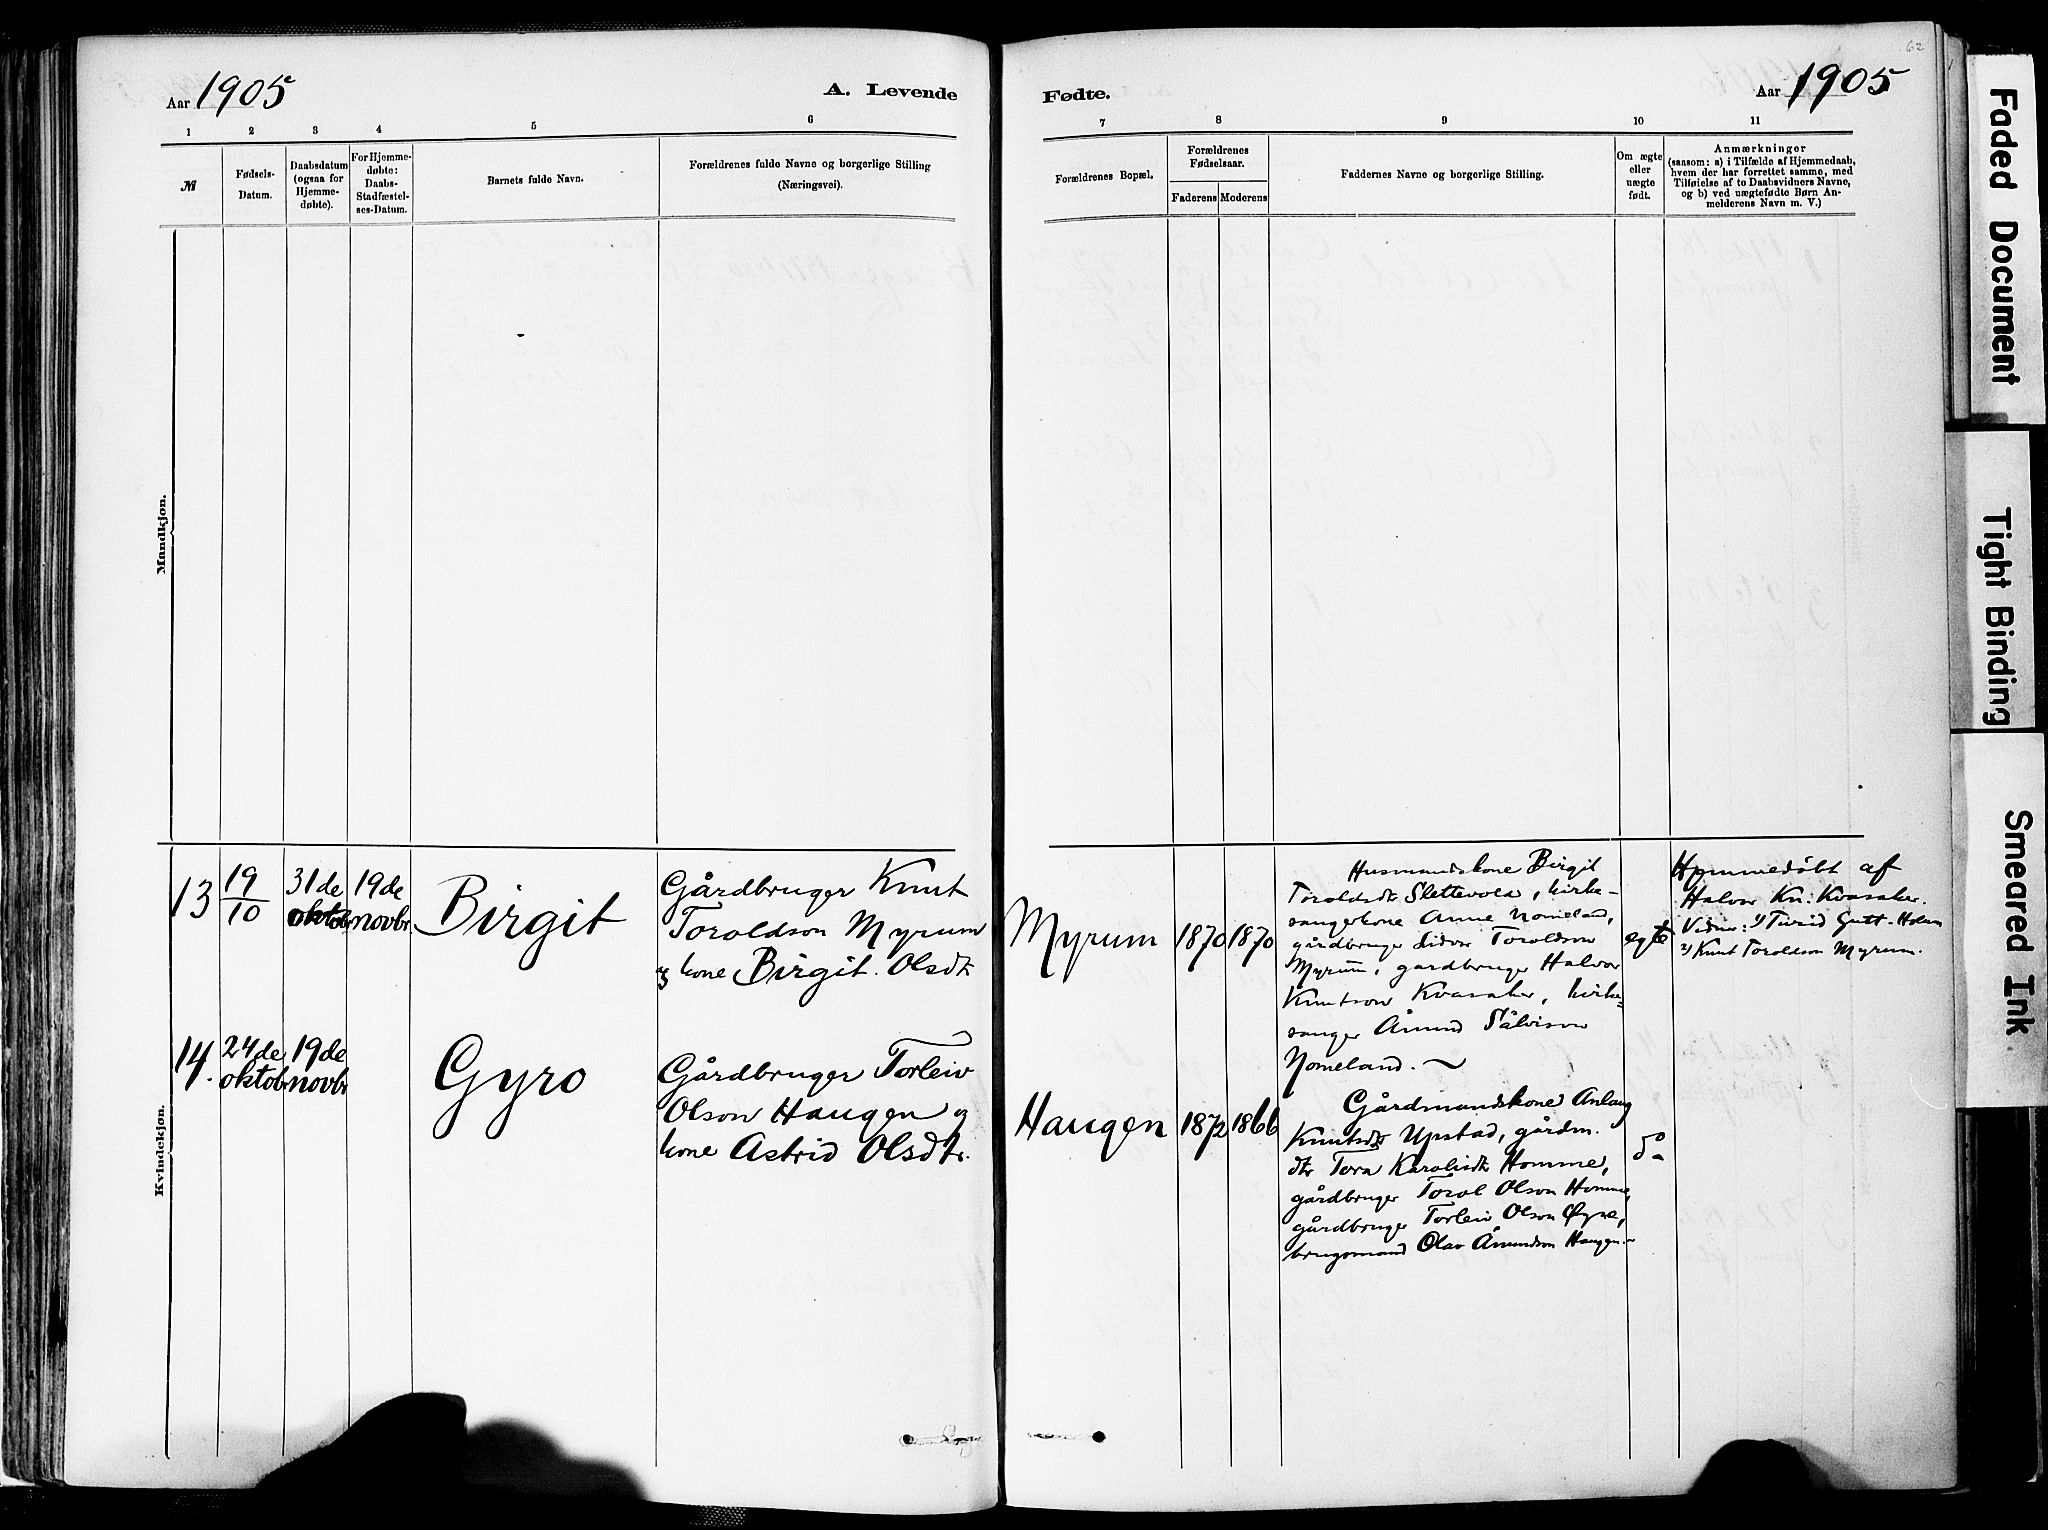 62
Aar 1905
A. Levende
Fødte.
Aar 1905
1 2 3 4 5 6
7 8 9 10 11
№
Fødsels-
Datum.
Daabsdatum
(ogsaa for
Hjemme-
døbte).
For Hjemme-
døbte:
Daabs-
Stadfæstel-
ses-Datum.
Barnets fulde Navn.
Forældrenes fulde Navne og borgerlige Stilling
(Næringsvei).
Forældrenes Bopæl.
Forældrenes
Fødselsaar.
Faderens Moderens
Faddernes Navne og borgerlige Stilling.
Om ægte
eller
uægte
født.
Anmærkninger
(saasom: a) i Tilfælde af Hjemmedaab,
hvem der har forrettet samme, med
Tilføielse af to Daabsvidners Navne,
og b) ved uægtefødte Børn An-
melderens Navn m. V.)
Mandkjøn.
Kvindekjøn.
13
19
10
31de
oktobr
19de
novbr
Birgit
Gårdbruger Knut
Toroldson Myrum
og kone Birgit Olsdtr
Myrum
1870
1870
Husmandskone Birgit
Toroldsdtr Slettevold, kirke-
sangerkone Anne Nomeland,
gårdbruger Sidvor Toroldson
Myrum, gardbruger Halvor
Knutson Kvasaker, kirke-
sanger Åmund Sålvison
Nomeland.
egte
Hjemmedöbt af
Halvor Kn: Kvasaker.
Vidner: 1) Turid Gutt. Holm
2) Knut Toroldson Myrum.
14.
24de
oktobr
19de
novbr
Gyro
Gårdbruger Torleiv
Olson Haugen og
kone Astrid Olsdtr.
Haugen
1872
1866
Gårdmandskone Anlaug
Knutsdtr Upstad, gårdm.
dtr Tora Karolisdtr Homme,
gårdbruger Torol Olson Homme,
gårdbruger Torleiv Olson Øyne,
brugsmand Olav Åmundson Haugen.
do
Faded Document
Tight Binding
Smeared Ink